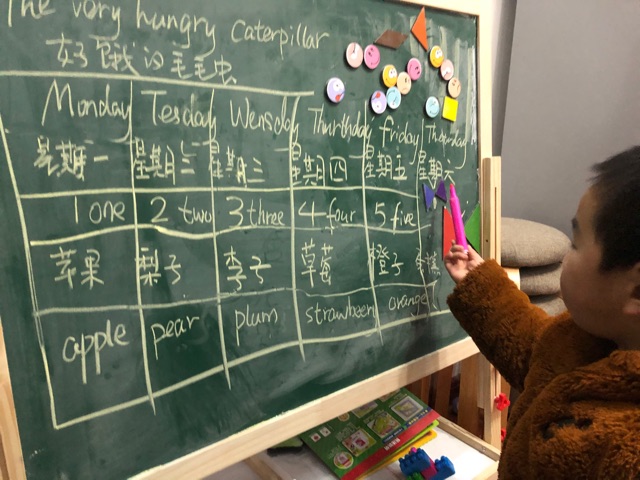 The very hungry caterpillar
好饿的毛毛虫
Monday Tesday Wersday Thurthday friday
星期一 星期二 星期三 星期四 星期五 星期六
1 one 2 two 3 three 4 four 5 five
苹果 梨子 李子 草莓 橙子
apple pear plum orange